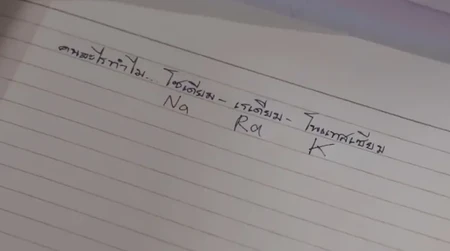 คนอะไรทำไม.. โซเดียม - เรเดียม - โพแทสเซียม
Na Ra K